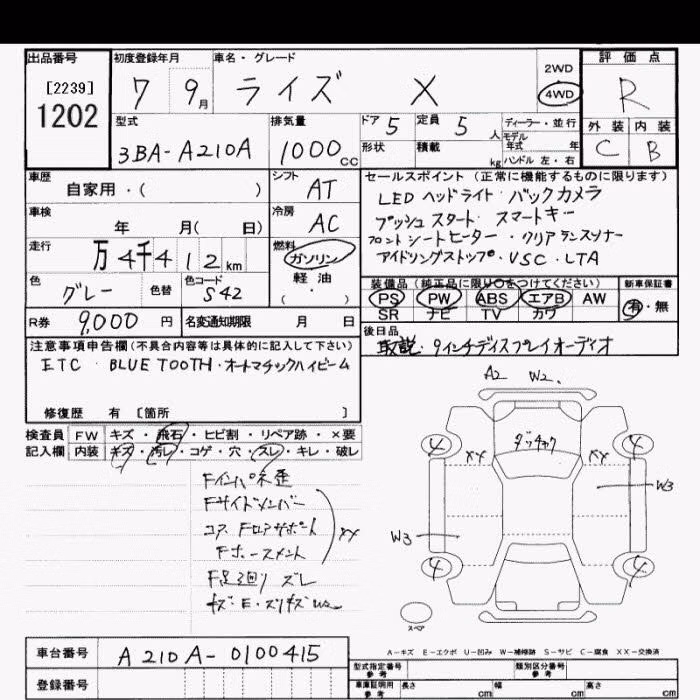 出品番号 初度登録年月 車名・グレード 評価点
[2239] 7 9月 ライズ X 2WD 4WD R
1202
型式 排気量 ドア 5 定員 5人 ディーラー・並行 外装 内装
3BA-A210A 1000cc 形状 積載 kg モデル年式 年 C B
ハンドル 左・右
車歴 シフト セールスポイント(正常に機能するものに限ります)
自家用・( ) AT LED ヘッドライト・バックカメラ
車検 冷房 プッシュスタート・スマートキー
年 月( 日) AC フロントシートヒーター・クリアランスソナー
走行 燃料 アイドリングストップ・VSC・LTA
万4千412km ガソリン
軽油
色 色替 色コード 装備品(純正品に限り○をつけてください) 新車保証書
グレー S42 PS PW ABS エアB AW 有・無
R券 9,000円 名変通知期限 月 日 SR ナビ TV カワ
後日品
注意事項申告欄(不具合内容等は具体的に記入して下さい) 取説・9インチディスプレイオーディオ
ETC・BLUETOOTH・オートマチックハイビーム
修復歴 有 [箇所 ]
A2 W2.
検査員 FW キズ・飛石・ヒビ割・リペア跡・×要
記入欄 内装 キズ・汚レ・コゲ・穴・スレ・キレ・破レ
4 4
XX XX
FインパネF歪
Fサイドメンバー
コアFロアサポート XX
Fホースメント
F足廻りズレ
W3
W3
4 4
スペア
A-キズ E-エクボ U-凹み W-補修跡 S-サビ C-腐食 XX-交換済
車台番号 A210A-0100415 型式指定番号 参考 類別区分番号 参考
登録番号 車庫証明用 参考 長さ cm 幅 cm 高さ cm